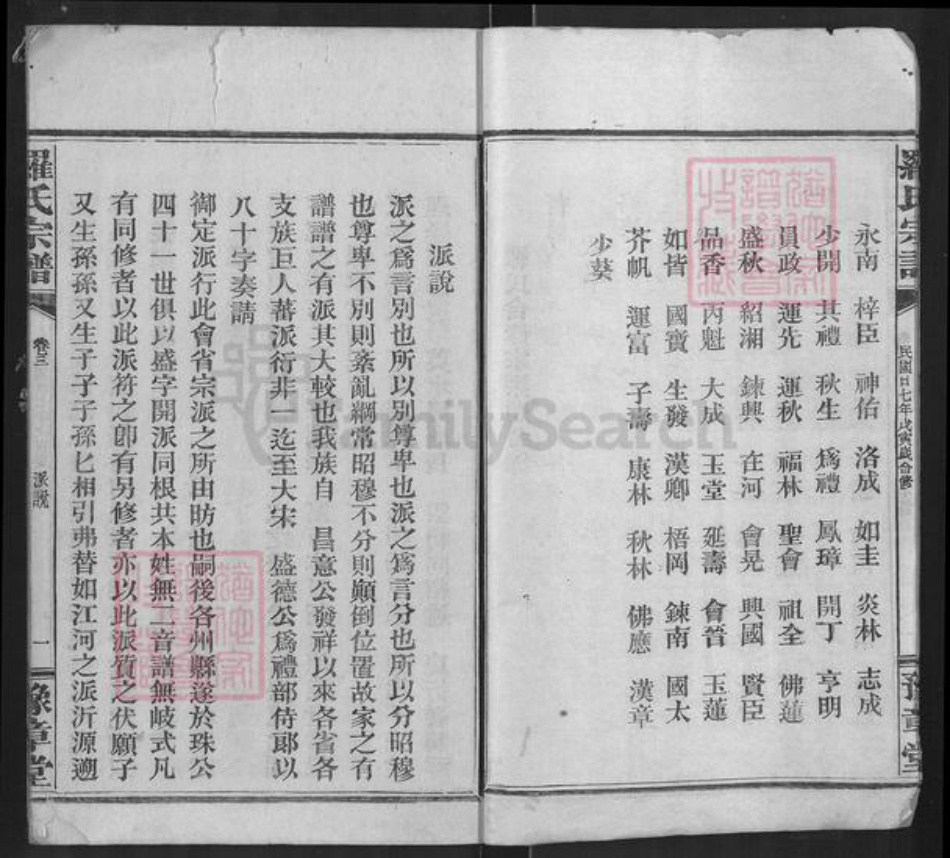 羅氏宗譜
民國廿七年戊寅歲合修
豫章堂
永南 梓臣 神佑 洛成 如圭 炎林 志成
少開 其禮 秋生 爲禮 鳳璋 開丁 亨明
員政 運先 運秋 福林 聖會 祖全 佛蓮
盛秋 紹湘 鍊興 在河 會晃 興國 賢臣
品香 丙魁 大成 玉堂 延壽 會晉 玉蓮
如皆 國寶 生發 漢卿 梧岡 鍊南 國太
芥帆 運富 子壽 康林 秋林 佛應 漢章
少葵
派說
派之爲言別也所以別尊卑也派之爲言分也所以分昭穆
也尊卑不別則紊亂綱常昭穆不分則顚倒位置故家之有
譜譜之有派其大較也我族自 昌意公發祥以來各省各
支族巨人蕃派衍非一迄至大宋 盛德公爲禮部侍郎以
八十字奏請
御定派行此會省宗派之所由昉也嗣後各州縣遂於珠公
四十一世俱以盛字開派同根共本姓無二音譜無岐式凡
有同修者以此派符之卽有另修者亦以此派質之伏願子
又生孫孫又生子子子孫孫匕相引弗替如江河之派沂源遡
羅氏宗譜
卷三
派說
一
豫章堂
FamilySearch